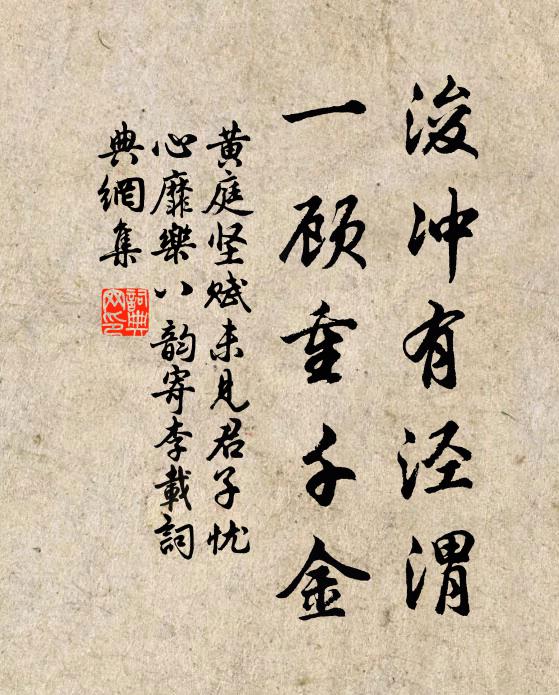 浚冲有泾渭
一顾重千金
黄庭坚赋未见君子忧
心靡樂八韵寄李載詞
典網集
詞典
网印